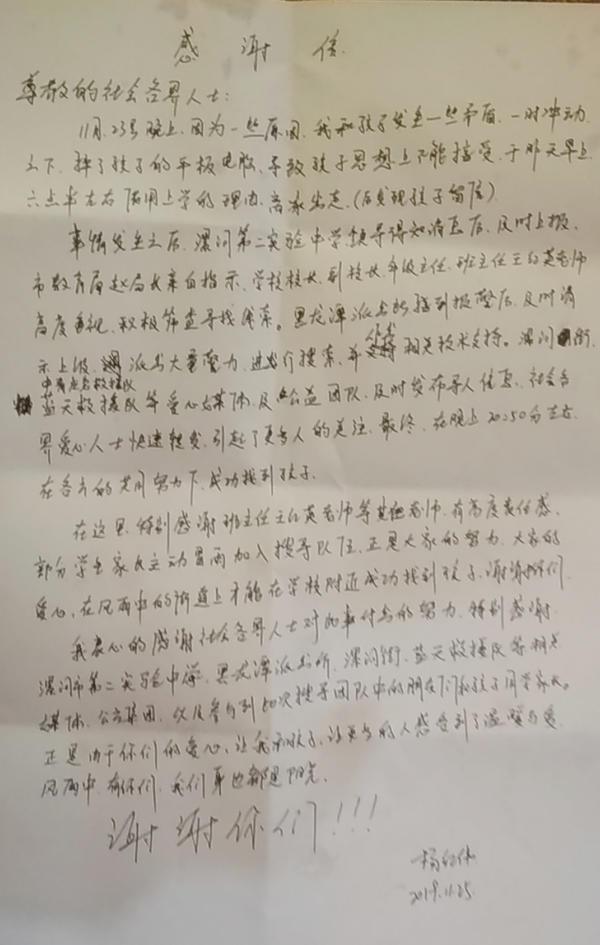 感谢信
尊敬的社会各界人士:
11月23号晚上,因为一些原因,我和孩子发生一些矛盾,一时冲动
之下,摔了孩子的平板电脑,导致孩子思想上不能接受,于昨天早上
六点半左右借用上学的理由,离家出走,(后发现孩子留信)
事情发生之后,漯河第二实验中学领导得知消息后,及时上报,
市教育局赵局长亲自指示、学校校长、副校长、年级主任、班主任王白英老师
高度重视,积极筛查寻找线索。黑龙潭派出所接到报警后,及时请
示上级,派出大量警力,进行搜索,并 相关技术支持。漯河街,
中 救援队
蓝天救援队等爱心媒体及公益团队,及时发布寻人信息,社会各
界爱心人士快速转发,引起了更多人的关注,最终,在晚上20:50分左右
在各方的共同努力下,成功找到孩子.
在这里,特别感谢班主任王白英老师等其他老师,有高度责任感,
部分学生家长主动冒雨加入搜寻队伍,正是大家的努力,大家的
爱心,在风雨中的街道上才能在学校附近成功找到孩子,谢谢你们
我衷心的感谢社会各界人士对此事付出的努力,特别感谢
漯河市第二实验中学、黑龙潭派出所、漯河街、蓝天救援队等相关
媒体、公益集团,以及参与到此次搜寻团队中的朋友们和孩子同学家长。
正是由于你们的爱心,让我和孩子,让更多的人感受到了温暖与爱
风雨中,有你们,我们身边都是阳光.
谢谢你们!!!
杨 伟
2019.11.25